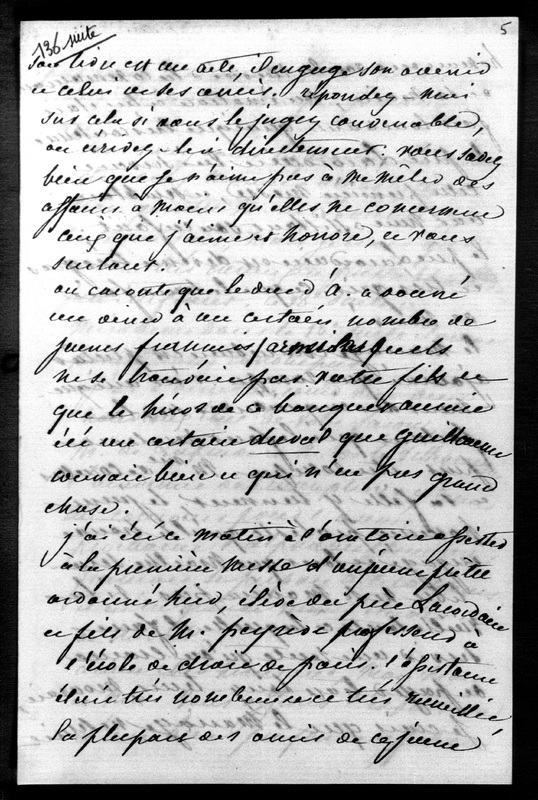 136 suite
5
son nom est un acte, il engage son avenir
et celui de ses amis. répondez-moi
sur cela si vous le jugez convenable,
ou écrivez-lui directement. vous savez
bien que je n'aime pas à me mêler des
affaires à moins qu'elles ne concernent
ceux que j'aime et honore, et vous
surtout.
on raconte que le duc d'A. a donné
un dîner à un certain nombre de
jeunes français parmi lesquels
ne se trouvait pas votre fils et
que le héros de ce banquet aurait
été un certain duval que Guillaume
connait bien et qui n'est pas grand
chose.
j'ai été ce matin à l'oratoire assister
à la première messe d'un jeune prêtre
ordonné hier, élève du père Lacordaire
et fils de M. per professeur à
l'école de droit de paris. l'assistance
était très nombreuse et très recueillie,
la plupart des amis de ce jeune